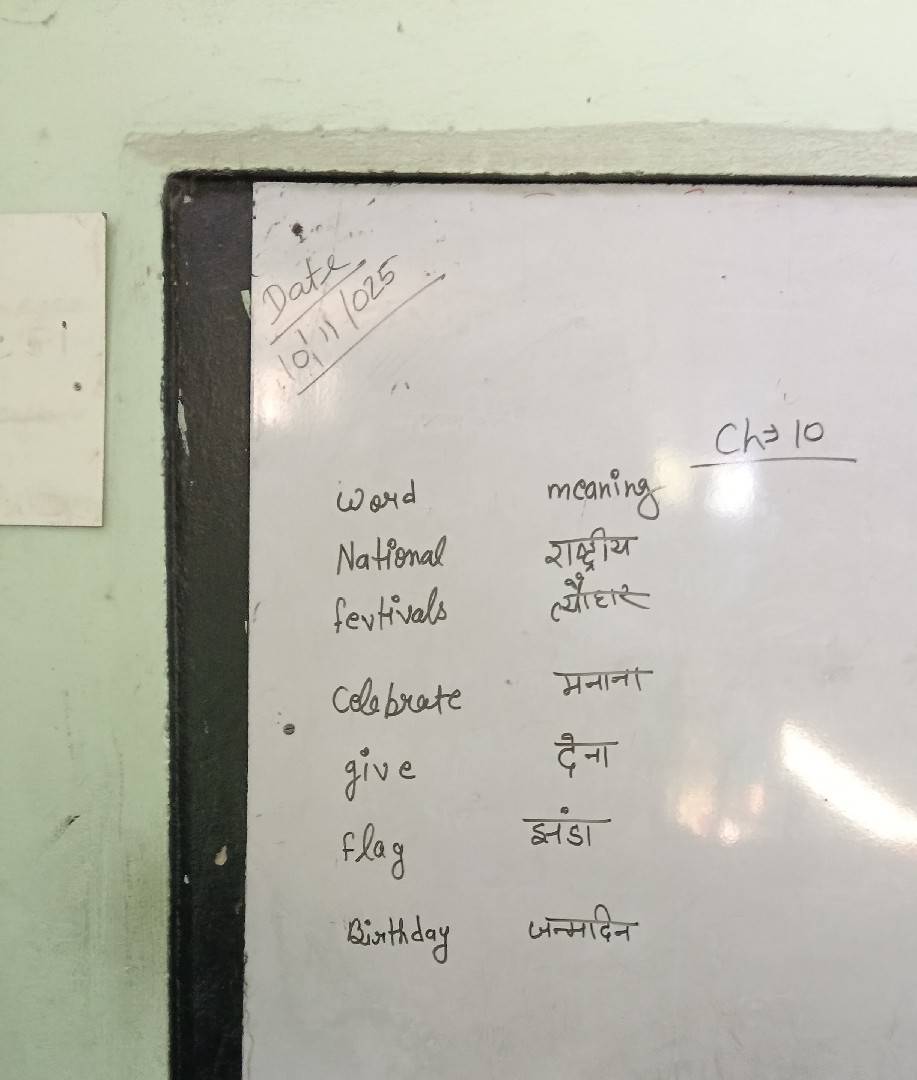 Date
10/11/025
Ch⇒10
word meaning
National राष्ट्रीय
fevtivals त्यौहार
Celebrate मनाना
give देना
flag झंडा
Birthday जन्मदिन